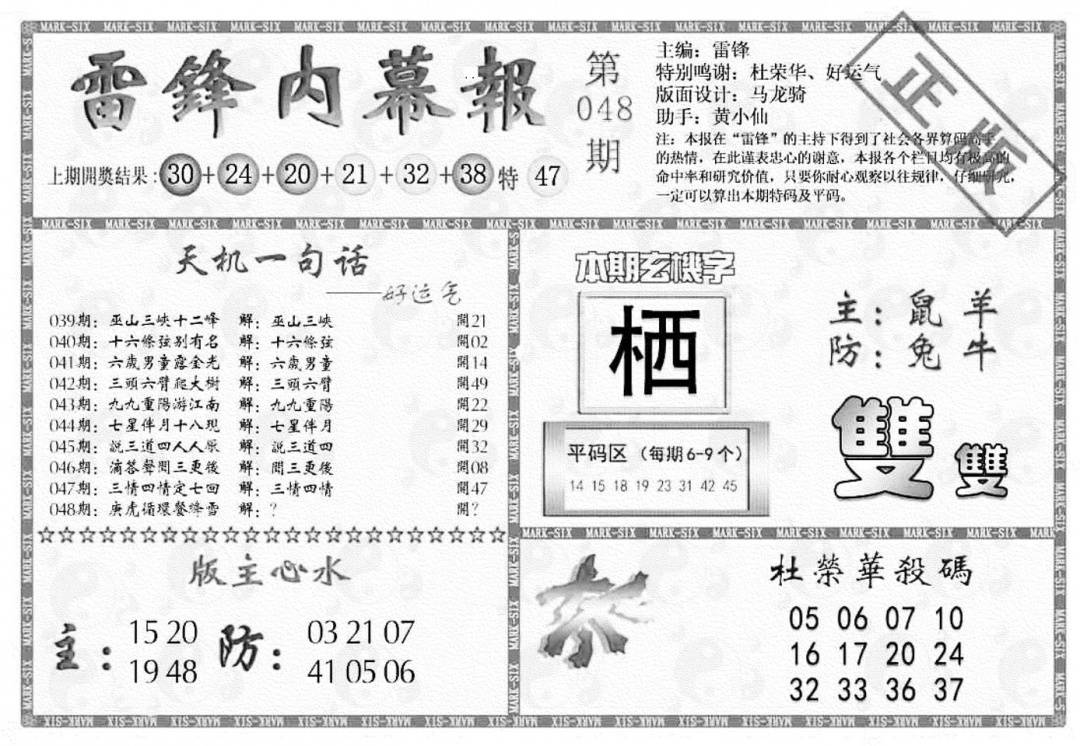 雷鋒内幕報
第
048
期
主编：雷锋
特别鸣谢：杜荣华、好运气
版面设计：马龙骑
助手：黄小仙
注：本报在“雷锋”的主持下得到了社会各界算码高手
的热情，在此谨表忠心的谢意，本报各个栏目均有极高的
命中率和研究价值，只要你耐心观察以往规律，仔细研究，
一定可以算出本期特码及平码。
正版
上期開獎结果：30+24+20+21+32+38特 47
天机一句话
——好运气
039期：巫山三峽十二峰 解：巫山三峽 開21
040期：十六條弦别有名 解：十六條弦 開02
041期：六歲男童露金光 解：六歲男童 開14
042期：三頭六臂爬大樹 解：三頭六臂 開49
043期：九九重陽游江南 解：九九重陽 開22
044期：七星伴月十八現 解：七星伴月 開29
045期：説三道四人人厭 解：説三道四 開32
046期：滴答聲問三更後 解：問三更後 開08
047期：三情四情定七回 解：三情四情 開47
048期：庚虎循環餐綘雪 解：？ 開？
☆☆☆☆☆☆☆☆☆☆☆☆☆☆☆☆☆☆☆☆☆☆☆
版主心水
主：
15 20
19 48
防：
03 21 07
41 05 06
本期玄機字
栖
平码区（每期6-9个）
14 15 18 19 23 31 42 45
主：鼠 羊
防：兔 牛
雙 雙
杀
杜榮華殺碼
05 06 07 10
16 17 20 24
32 33 36 37
MARK-SIX